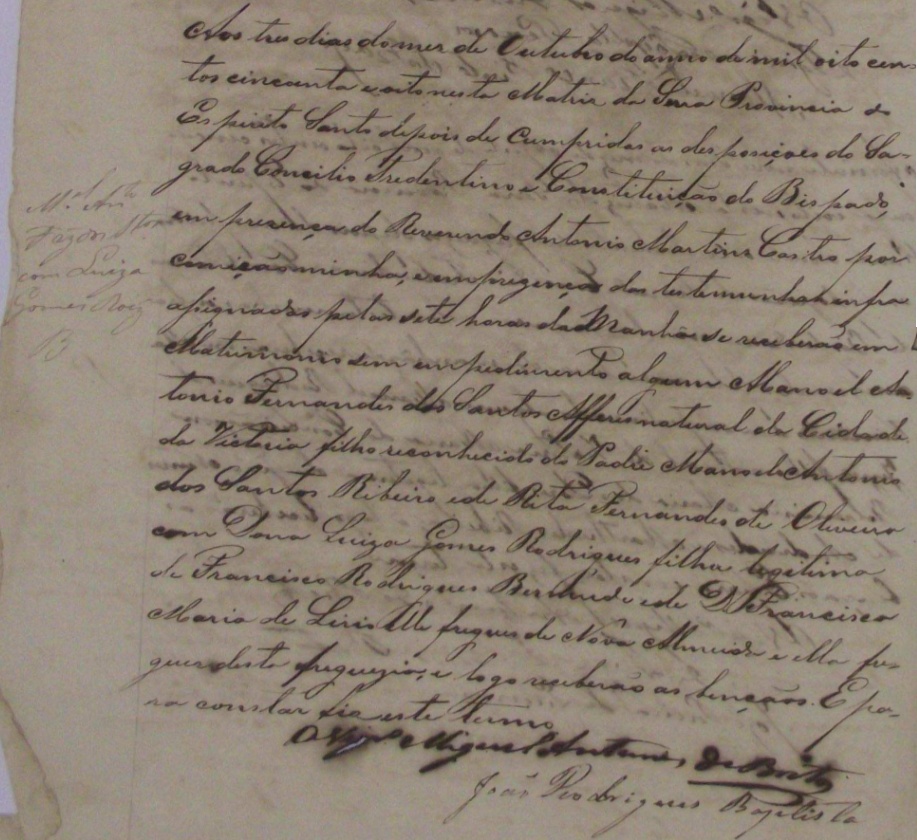 Aos tres dias do mez de Outubro do anno de mil oito cen-
tos cincoenta e oito nesta Matriz da Serra Provincia do
Espirito Santo depois de cumpridas as desposiçoes do Sa-
grado Concilio Tredentino e Constituição do Bispado,
em presença do Reverendo Antonio Martins Castro por
comição minha, e em prezença das testemunhas infra
assignadas pelas sete horas da Manhã se receberão em
Matrimonio sem empedimento algum Manoel An
tonio Fernandes dos Santos natural da Cidade
da Victoria filho reconhecido do Padre Manoel Antonio
dos Santos Ribeiro e de Rita Fernandes de Oliveira
com Dona Luiza Gomes Rodrigues filha legitima
de Francisco Rodrigues e de D. Francisca
Maria de Elle fregues de Nova Almeida e Ella fre-
gues desta freguezia, e logo receberão as bençãos. E pa-
ra constar fiz este termo
O Miguel Antunes de Brito
João Rodrigues Baptista
M.el Ant.o
com Luiza
Gomes Roiz
B